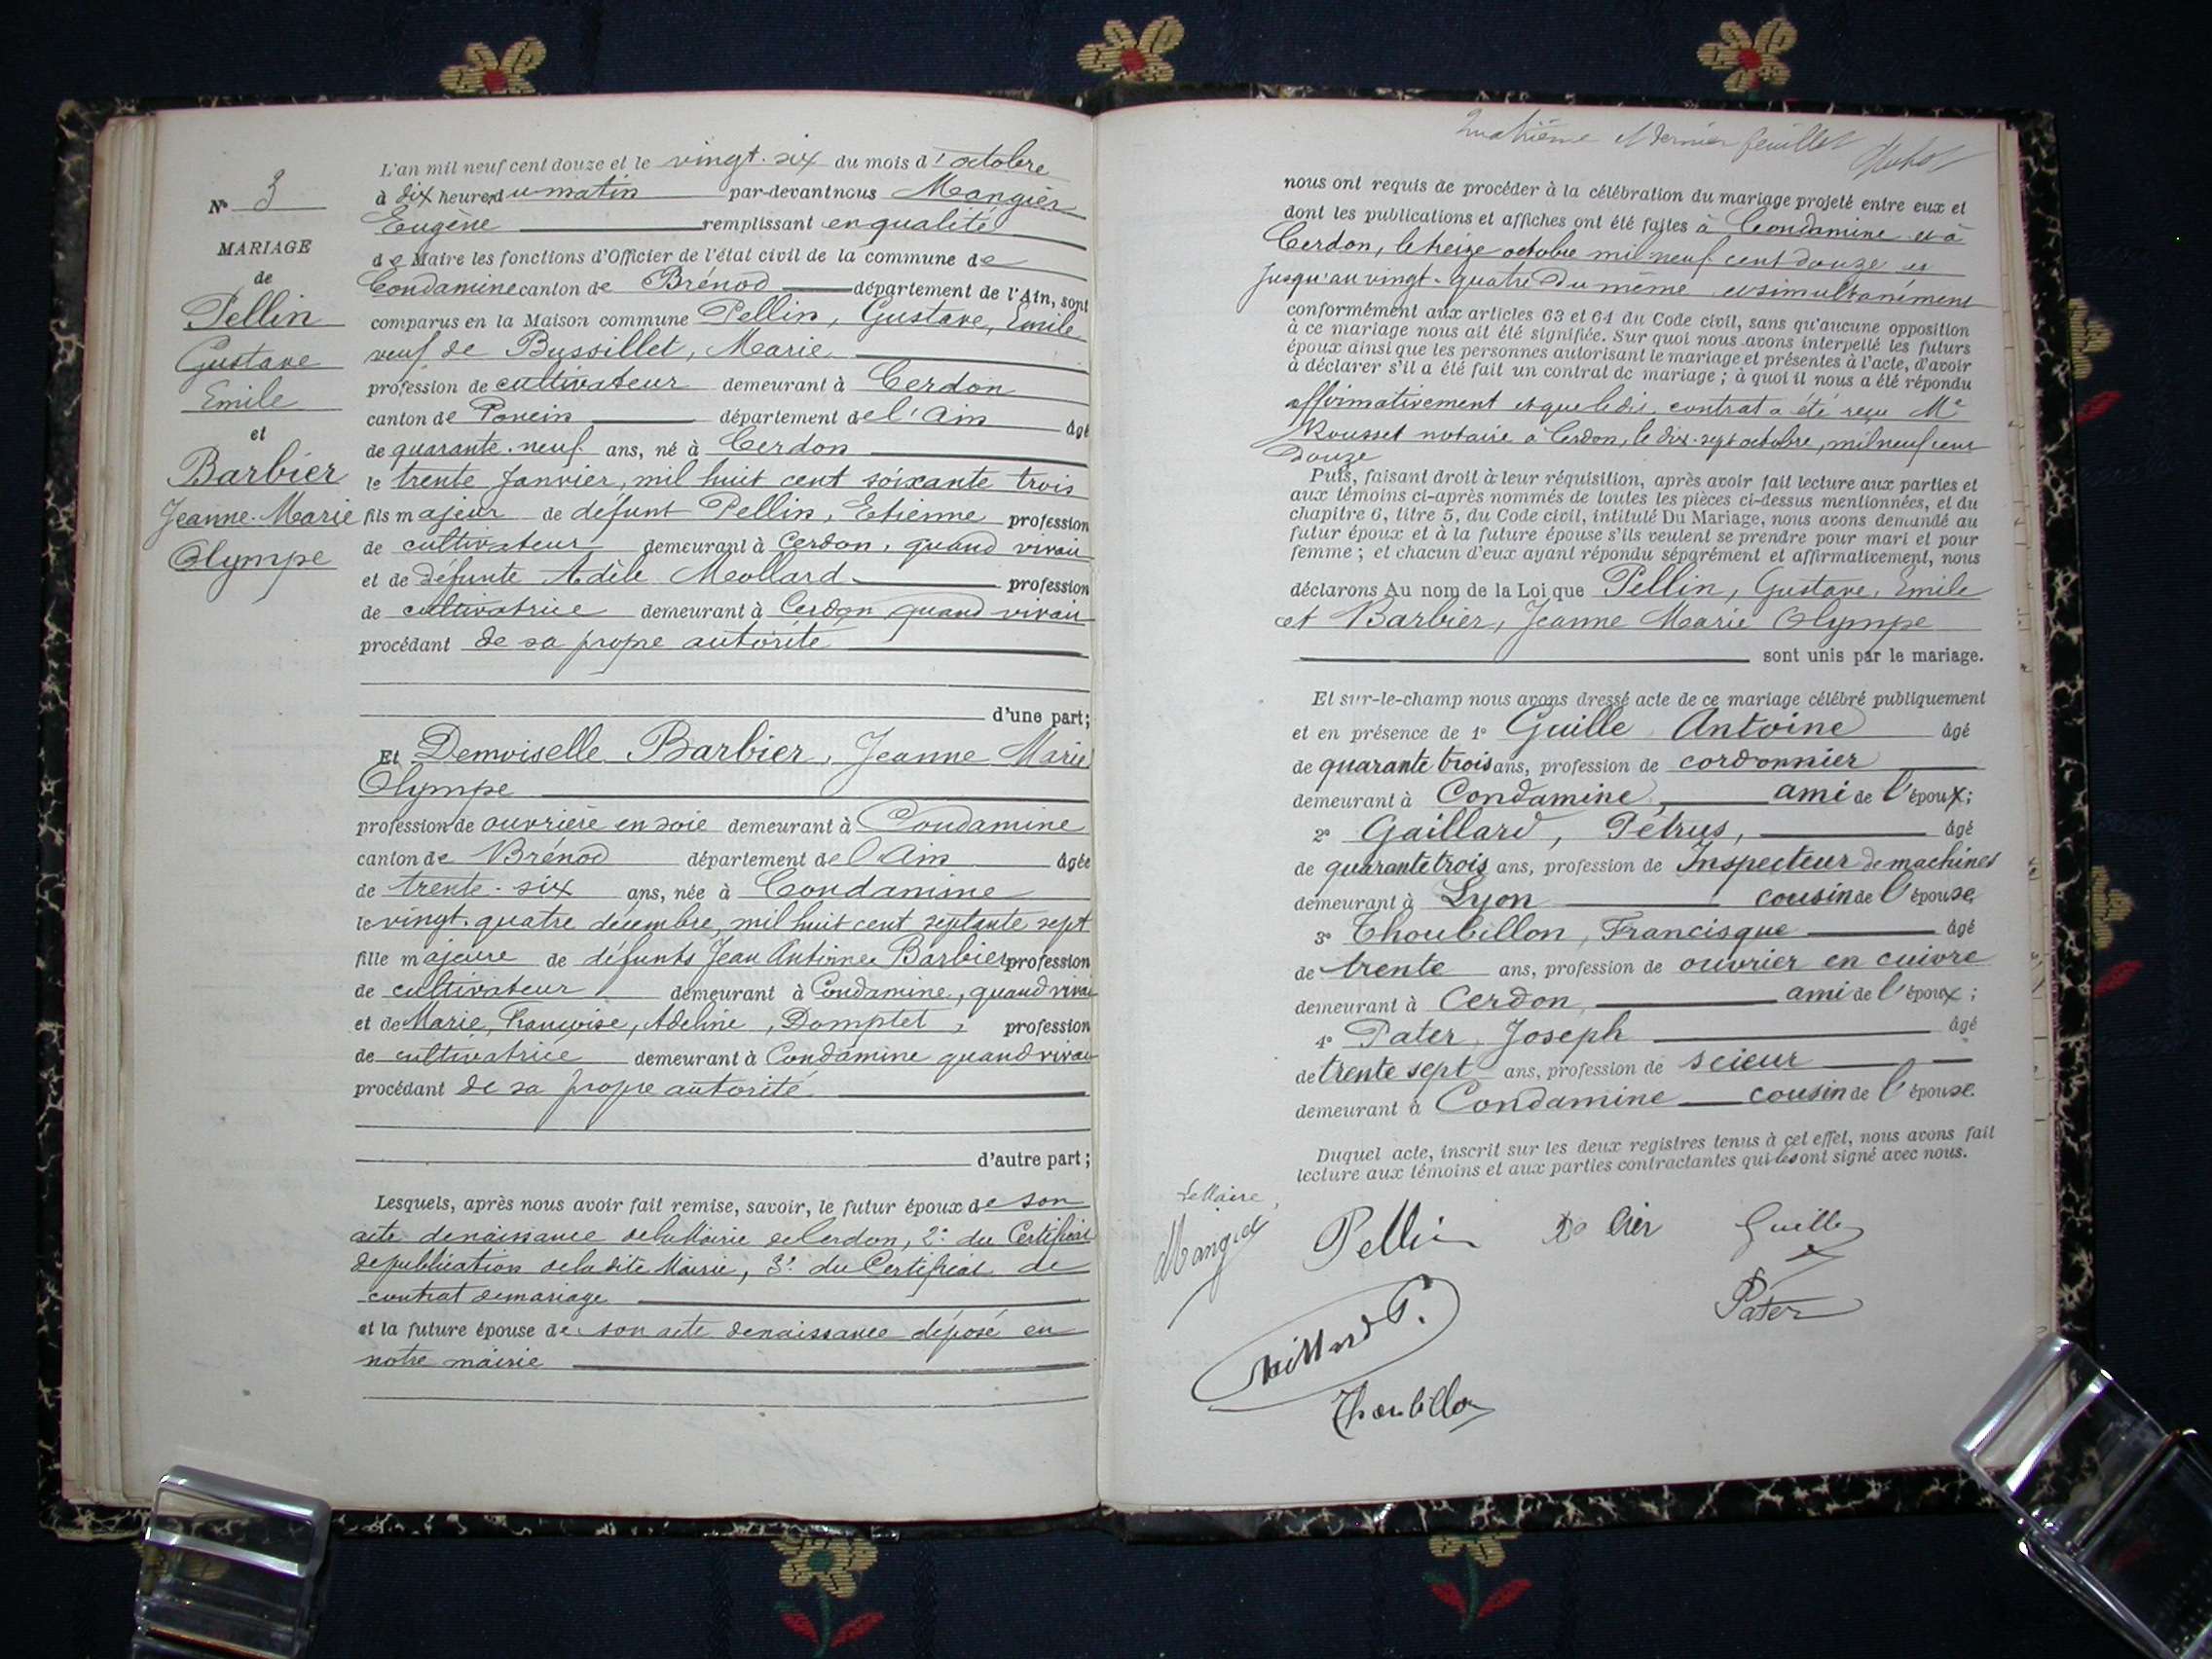 N° 3
MARIAGE
de
Pellin
Gustave
Emile
et
Barbier
Jeanne-Marie
Olympe
L'an mil neuf cent douze et le vingt-six du mois d'octobre
à dix heures du matin par-devant nous Mangier
Eugène remplissant en qualité
de Maire les fonctions d'Officier de l'état civil de la commune de
Condamine canton de Brénod département de l'Ain, sont
comparus en la Maison commune Pellin, Gustave, Emile
veuf de Bussillet, Marie
profession de cultivateur demeurant à Cerdon
canton de Poncin département de l'Ain âgé
de quarante-neuf ans, né à Cerdon
le trente Janvier, mil huit cent soixante trois
fils majeur de défunt Pellin, Etienne profession
de cultivateur demeurant à Cerdon, quand vivait
et de défunte Adèle Mollard profession
de cultivatrice demeurant à Cerdon quand vivait
procédant de sa propre autorité
d'une part;
Et Demoiselle Barbier, Jeanne Marie
Olympe
profession de ouvrière en soie demeurant à Condamine
canton de Brénod département de l'Ain âgée
de trente-six ans, née à Condamine
le vingt-quatre décembre, mil huit cent septante sept
fille majeure de défunts Jean Antoine Barbier profession
de cultivateur demeurant à Condamine, quand vivai
et de Marie, Françoise, Adeline, Domptet, profession
de cultivatrice demeurant à Condamine quand vivai
procédant de sa propre autorité
d'autre part;
Lesquels, après nous avoir fait remise, savoir, le futur époux de son
acte de naissance de la Mairie de Cerdon, 2° du Certificat
de publication de la dite Mairie, 3° du Certificat de
contrat de mariage
et la future épouse de son acte de naissance déposé en
notre mairie
Quatrième et dernier feuillet
nous ont requis de procéder à la célébration du mariage projeté entre eux et
dont les publications et affiches ont été faites à Condamine et à
Cerdon, le treize octobre mil neuf cent douze et
jusqu'au vingt-quatre du même et simultanément
conformément aux articles 63 et 64 du Code civil, sans qu'aucune opposition
à ce mariage nous ait été signifiée. Sur quoi nous avons interpellé les futurs
époux ainsi que les personnes autorisant le mariage et présentes à l'acte, d'avoir
à déclarer s'il a été fait un contrat de mariage; à quoi il nous a été répondu
affirmativement et que le dit contrat a été reçu Me
Rousset notaire à Cerdon, le dix-sept octobre, mil neuf cent
douze
Puis, faisant droit à leur réquisition, après avoir fait lecture aux parties et
aux témoins ci-après nommés de toutes les pièces ci-dessus mentionnées, et du
chapitre 6, titre 5, du Code civil, intitulé Du Mariage, nous avons demandé au
futur époux et à la future épouse s'ils veulent se prendre pour mari et pour
femme; et chacun d'eux ayant répondu séparément et affirmativement, nous
déclarons Au nom de la Loi que Pellin, Gustave, Emile
et Barbier, Jeanne Marie Olympe
sont unis par le mariage.
Et sur-le-champ nous avons dressé acte de ce mariage célébré publiquement
et en présence de 1° Guille Antoine âgé
de quarante trois ans, profession de cordonnier
demeurant à Condamine ami de l'époux;
2° Gaillard, Pétrus, âgé
de quarante trois ans, profession de Inspecteur de machines
demeurant à Lyon cousin de l'épouse
3° Thoubillon, Francisque âgé
de trente ans, profession de ouvrier en cuivre
demeurant à Cerdon, ami de l'époux;
4° Pater, Joseph âgé
de trente sept ans, profession de scieur
demeurant à Condamine cousin de l'épouse
Duquel acte, inscrit sur les deux registres tenus à cet effet, nous avons fait
lecture aux témoins et aux parties contractantes qui les ont signé avec nous.
Le Maire,
Mangier Pellin Guille
Pater
Thoubillon